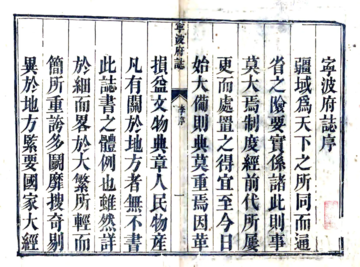 寧波府誌序
疆域為天下之所同而通
省之險要實係諸此則事
莫大焉制度經前代所屢
更而處置之得宜至今日
始大備則典莫重焉因革
寧波府誌
李序
一
損益文物典章人民物產
凡有關於地方者無不書
此誌書之體例也雖然詳
於細而畧於大繁所輕而
簡所重誇多鬭靡搜奇剔
異於地方緊要國家大經